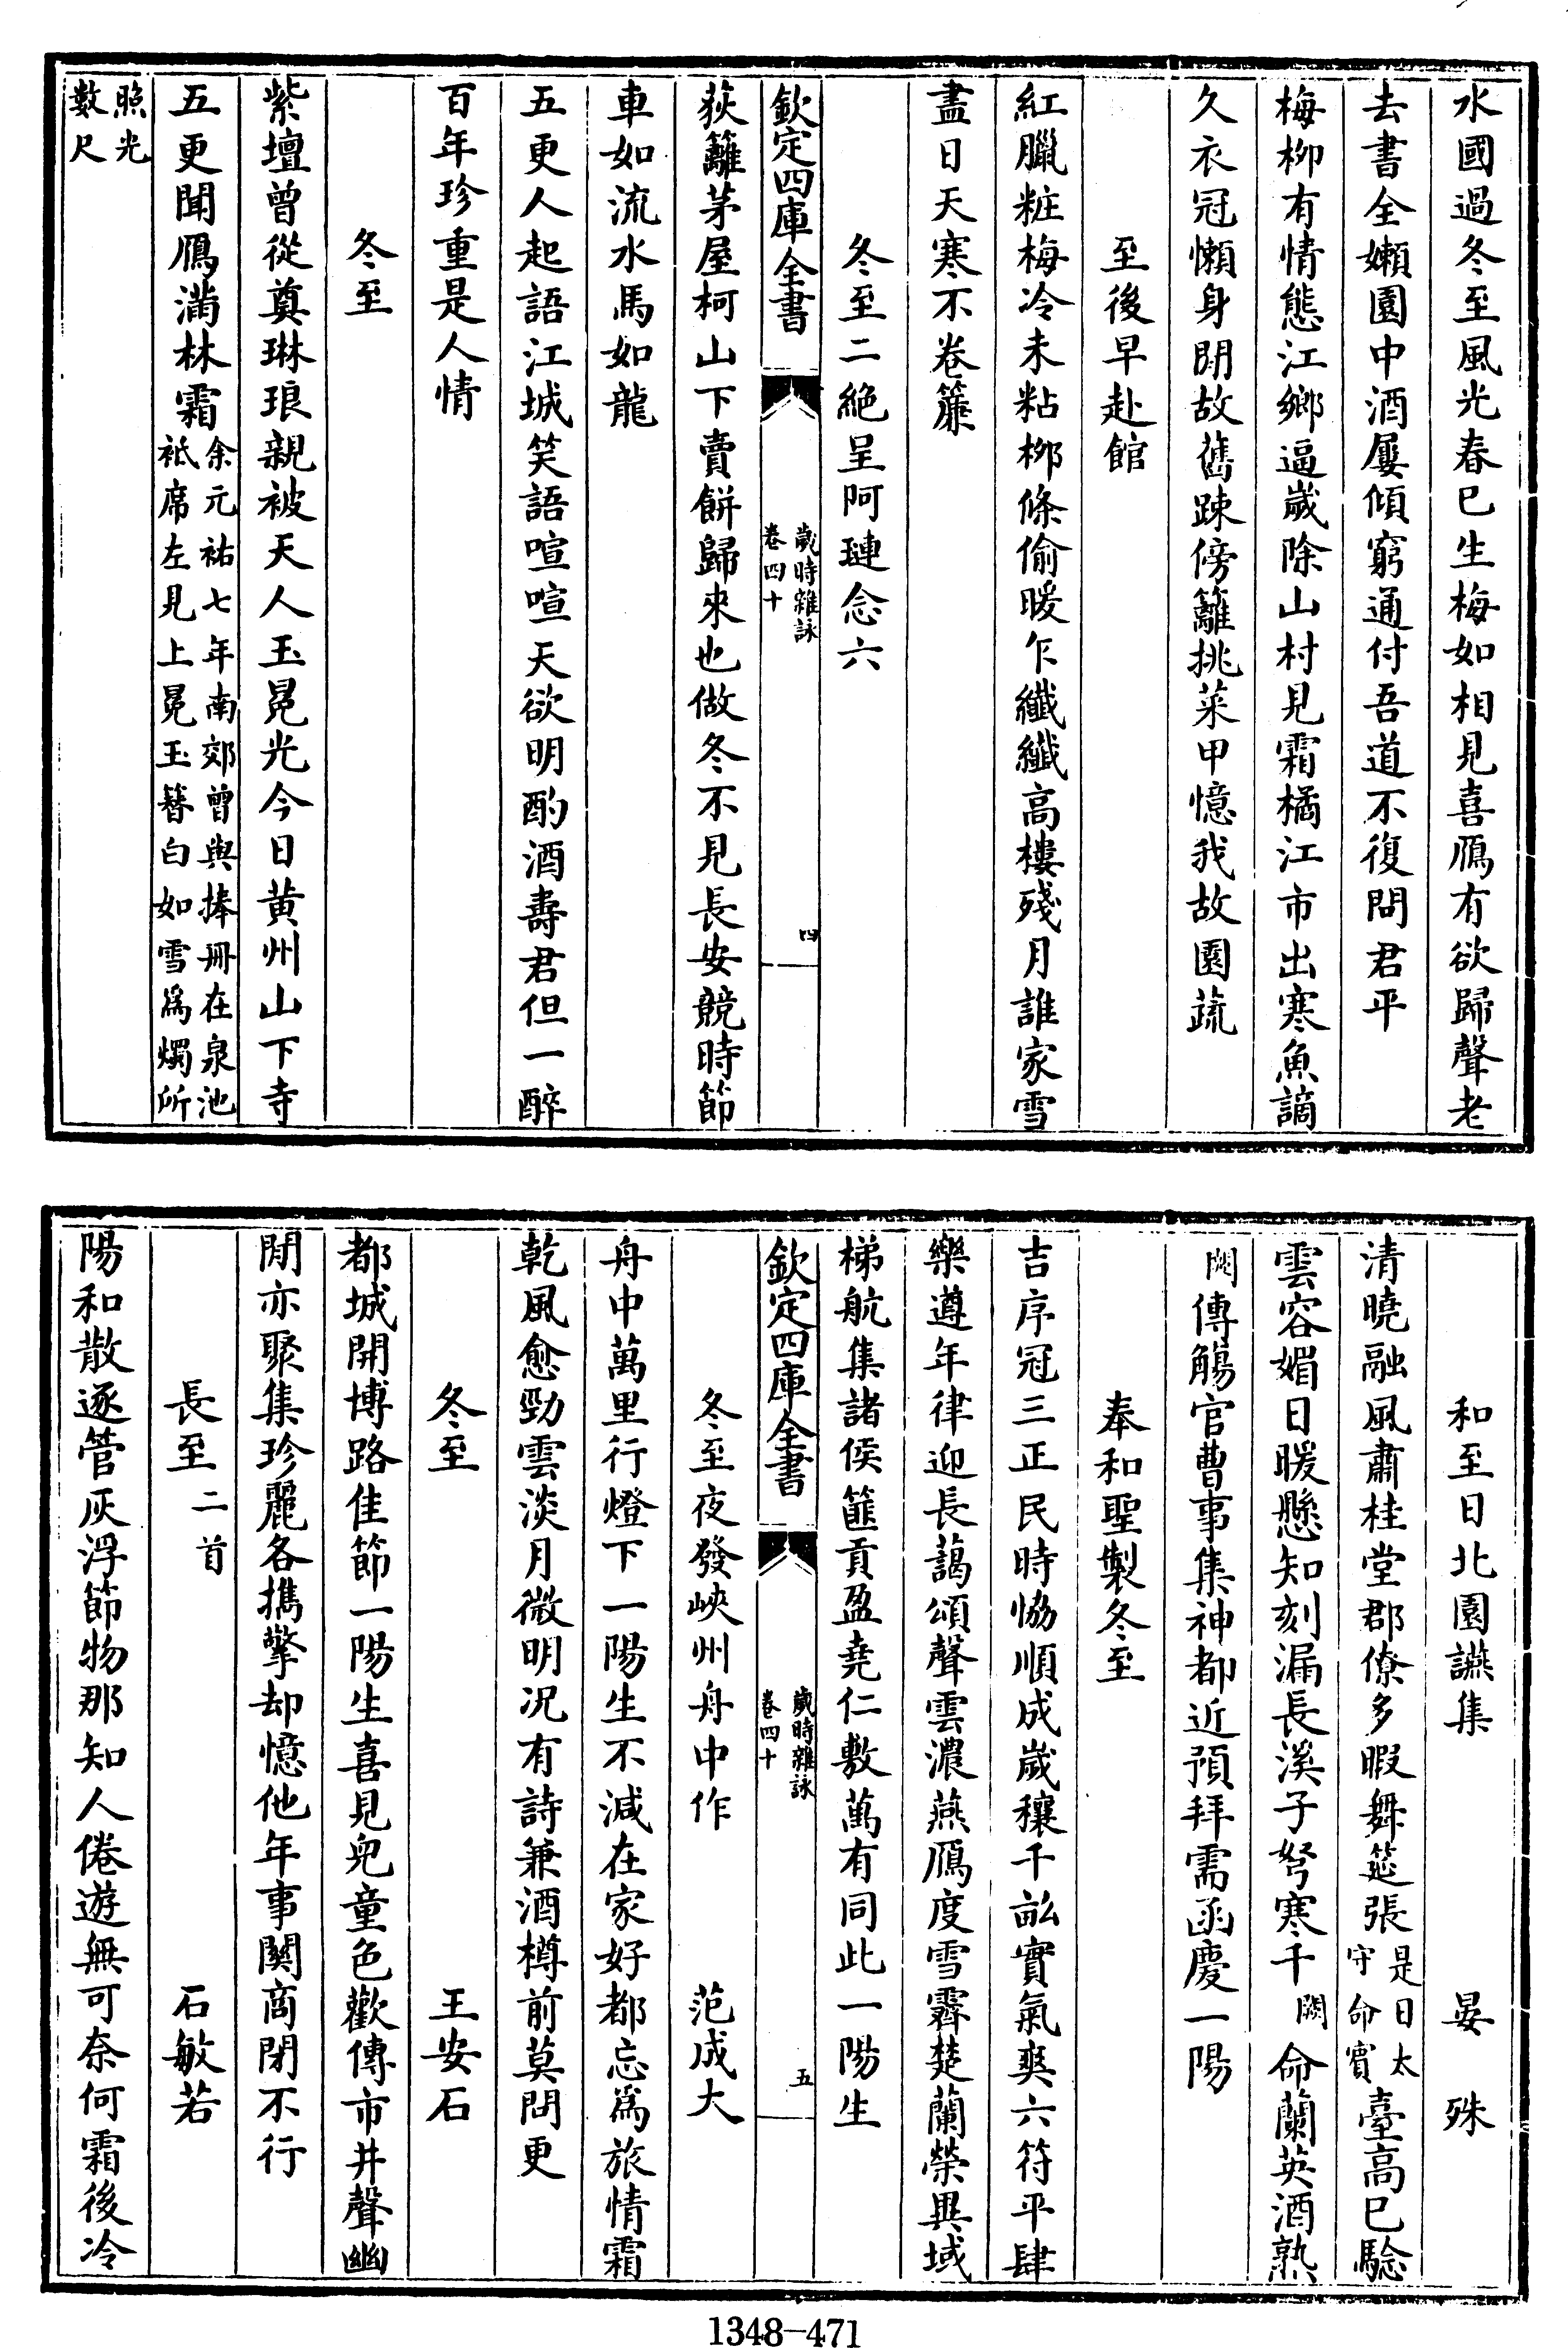 水國過冬至風光春已生梅如相見喜鴈有欲歸聲老
去書全嬾園中酒屢傾窮通付吾道不復問君平
梅栁有情態江鄉逼歲除山村見霜橘江市出寒魚謫
久衣冠懶身閒故舊踈傍籬挑菜甲憶我故園蔬
至後早赴館
紅臘粧梅冷未粘栁條偷暖乍纖纖高樓殘月誰家雪
盡日天寒不卷簾
冬至二絶呈阿璉念六
欽定四庫全書
歲時雜詠
卷四十
四
荻籬茅屋柯山下賣餅歸來也做冬不見長安競時節
車如流水馬如龍
五更人起語江城笑語喧喧天欲明酌酒壽君但一醉
百年珍重是人情
冬至
紫壇曾從奠琳琅親被天人玉冕光今日黄州山下寺
五更聞鴈滿林霜
余元祐七年南郊曾與捧冊在泉池
祗席左見上冕玉簪白如雪為燭所
照光
數尺
和至日北園讌集 晏殊
清曉融風肅桂堂郡僚多暇舞筵張
是日太
守命賓
臺高巳騐
雲容媚日暖懸知刻漏長溪子弩寒千闕命蘭英酒熟
闕傳觴官曹事集神都近預拜需函慶一陽
奉和聖製冬至
吉序冠三正民時恊順成歲穰千畝實氣爽六符平肆
樂遵年律迎長藹頌聲雲濃燕鴈度雪霽楚蘭榮異域
梯航集諸侯篚貢盈堯仁敷萬有同此一陽生
欽定四庫全書
歲時雜詠
卷四十
五
冬至夜發峽州舟中作 范成大
舟中萬里行燈下一陽生不減在家好都忘為旅情霜
乾風愈勁雲淡月微明况有詩兼酒樽前莫問更
冬至 王安石
都城開博路佳節一陽生喜見兒童色歡傳市井聲幽
閒亦聚集珍麗各擕擎却憶他年事關啇閉不行
長至二首 石敏若
陽和散逐管灰浮節物那知人倦遊無可奈何霜後冷
1348-471